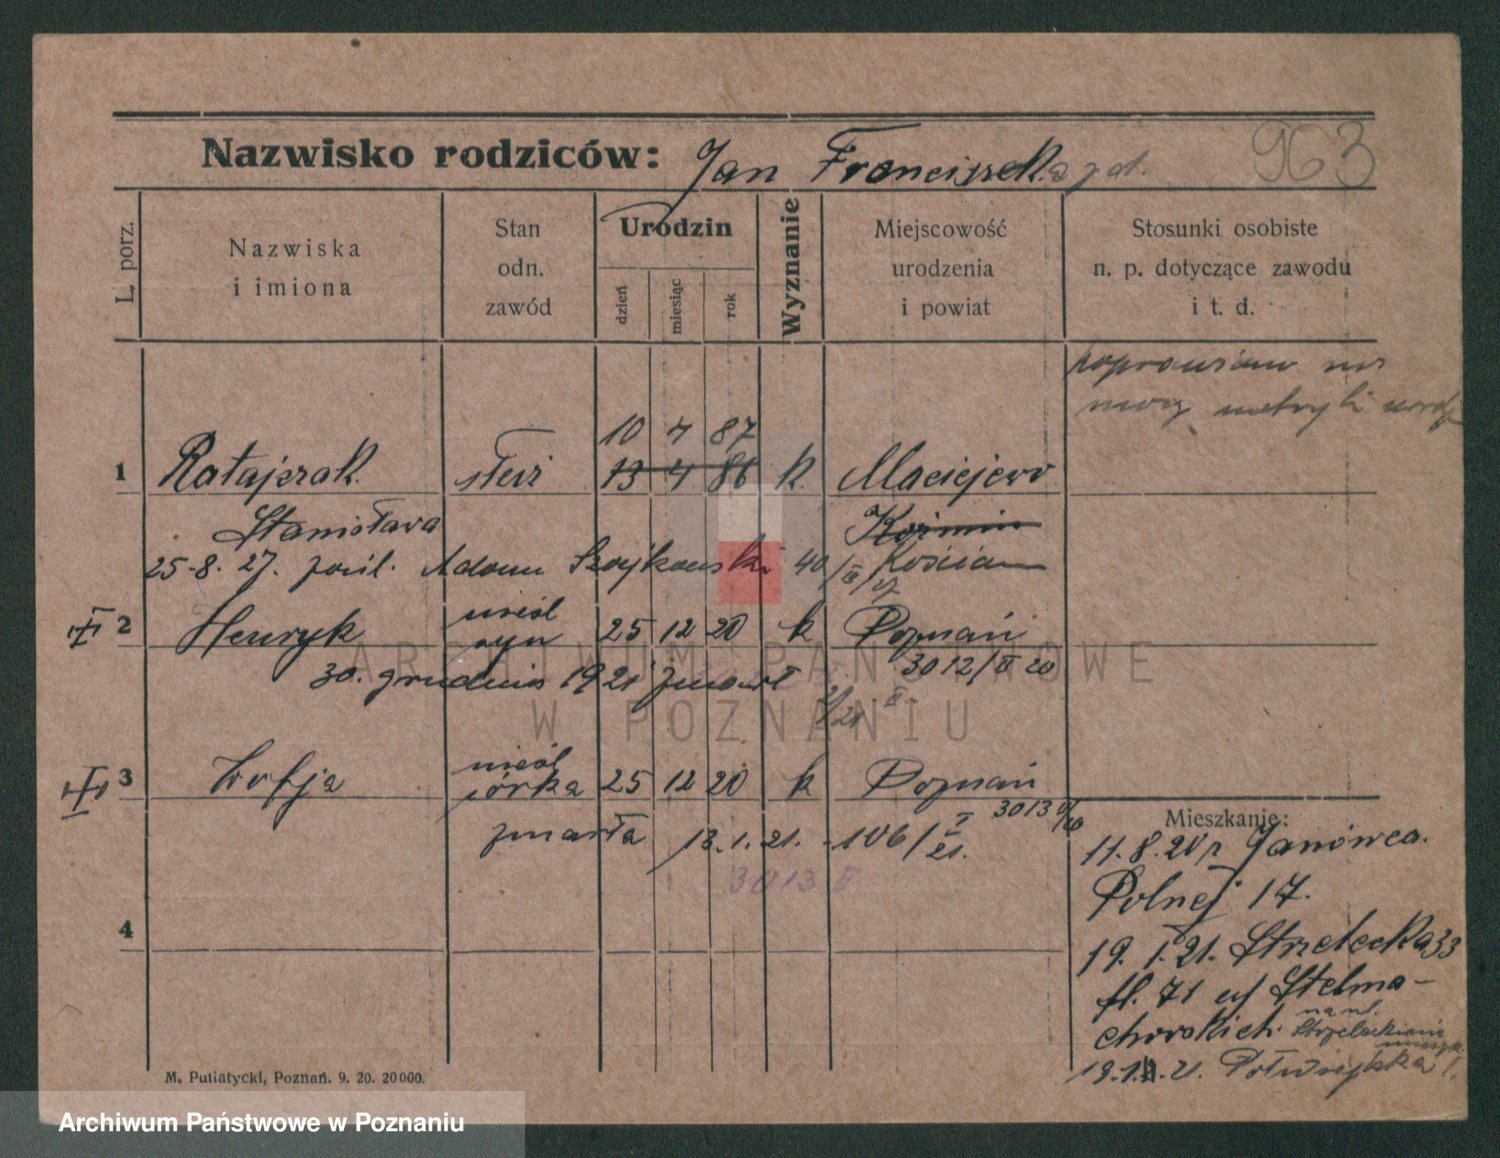 Nazwisko rodziców: Jan Franciszek
963
L. porz.
Nazwiska
i imiona
Stan
odn.
zawód
Urodzin
dzień
miesiąc
rok
Wyznanie
Miejscowość
urodzenia
i powiat
Stosunki osobiste
n. p. dotyczące zawodu
i t. d.
10 4 87
1 Ratajczak 13 4 86 k Maciejewo
Stanisława Koźmin
25-8. 27. Adam Kościan
nieśl
2 Henryk syn 25 12 20 k Poznań
30. grudnia 1921 zmarł 3012/II 20
nieśl
3 Zofja córka 25 12 20 k Poznań
3013
zmarła 13. 1. 21. 106/I 21.
3013 II
4
Mieszkanie:
11. 8. 20 Janówca.
Polnej 17.
19. 1. 21. Strzelecka 33
fl. 71 Stelma-
chowskich
19. 1. 21. Półwiejska
M. Putiatycki, Poznań. 9. 20. 20000.
ARCHIWUM PAŃSTWOWE
W POZNANIU
Archiwum Państwowe w Poznaniu